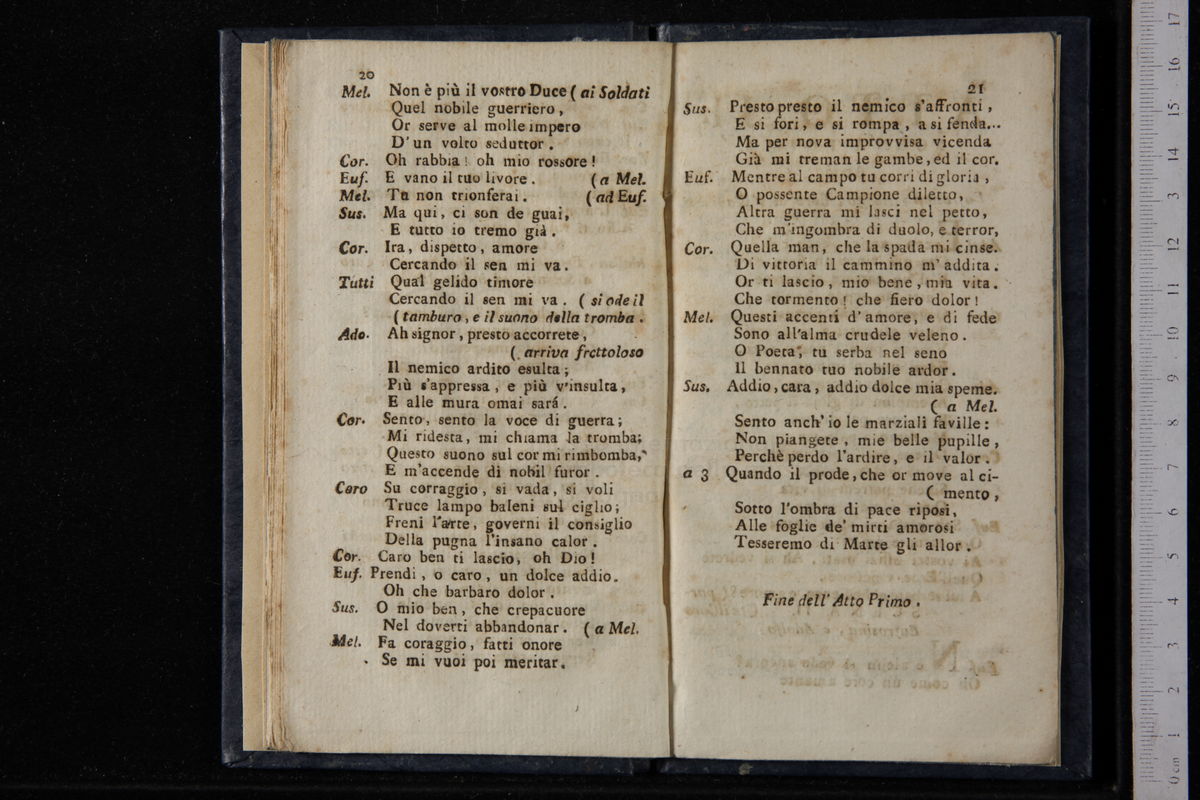 20
Mel. Non è più il vostro Duce ( ai Soldati
Quel nobile guerriero,
Or serve al molle impero
D'un volto seduttor.
Cor. Oh rabbia! oh mio rossore!
Euf. E vano il tuo livore. ( a Mel.
Mel. Tu non trionferai. ( ad Euf.
Sus. Ma qui, ci son de guai,
E tutto io tremo già.
Cor. Ira, dispetto, amore
Cercando il sen mi va.
Tutti Qual gelido timore
Cercando il sen mi va. ( si ode il
( tamburo, e il suono della tromba.
Ado. Ah signor, presto accorrete,
( arriva frettoloso
Il nemico ardito esulta;
Più s'appressa, e più v'insulta,
E alle mura omai sará.
Cor. Sento, sento la voce di guerra;
Mi ridesta, mi chiama la tromba;
Questo suono sul cor mi rimbomba,
E m'accende di nobil furor.
Coro Su corraggio, si vada, si voli
Truce lampo baleni sul ciglio;
Freni l'arte, governi il consiglio
Della pugna l'insano calor.
Cor. Caro ben ti lascio, oh Dio!
Euf. Prendi, o caro, un dolce addio.
Oh che barbaro dolor.
Sus. O mio ben, che crepacuore
Nel doverti abbandonar. ( a Mel.
Mel. Fa coraggio, fatti onore
Se mi vuoi poi meritar.
21
Sus. Presto presto il nemico s'affronti,
E si fori, e si rompa, a si fenda...
Ma per nova improvvisa vicenda
Già mi treman le gambe, ed il cor.
Euf. Mentre al campo tu corri di gloria,
O possente Campione diletto,
Altra guerra mi lasci nel petto,
Che m'ingombra di duolo, e terror,
Cor. Quella man, che la spada mi cinse.
Di vittoria il cammino m'addita.
Or ti lascio, mio bene, mia vita.
Che tormento! che fiero dolor!
Mel. Questi accenti d'amore, e di fede
Sono all'alma crudele veleno.
O Poeta, tu serba nel seno
Il bennato tuo nobile ardor.
Sus. Addio, cara, addio dolce mia speme.
( a Mel.
Sento anch'io le marziali faville:
Non piangete, mie belle pupille,
Perchè perdo l'ardire, e il valor.
a 3 Quando il prode, che or move al ci-
( mento,
Sotto l'ombra di pace riposi,
Alle foglie de' mirti amorosi
Tesseremo di Marte gli allor.
Fine dell' Atto Primo.
0 cm 1 2 3 4 5 6 7 8 9 10 11 12 13 14 15 16 17